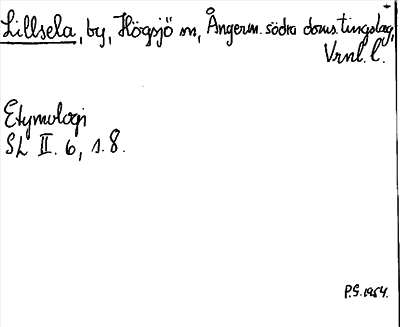 Lillsela, by, Högsjö sn, Ångerm. södra doms. tingslag,
Vrnl. l.
Etymologi
SL II. 6, s. 8.
P.G. 1954.